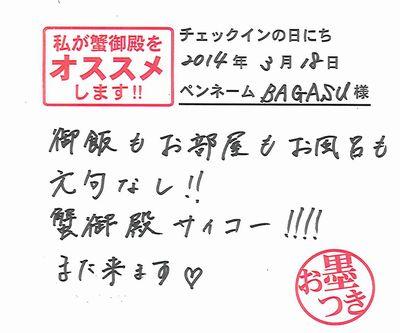 私が蟹御殿を
オススメ
します!!
チェックインの日にち
2014年3月18日
ペンネーム BAGASU 様
御飯もお部屋もお風呂も
文句なし!!
蟹御殿サイコー!!!!
また来ます♡
お墨つき